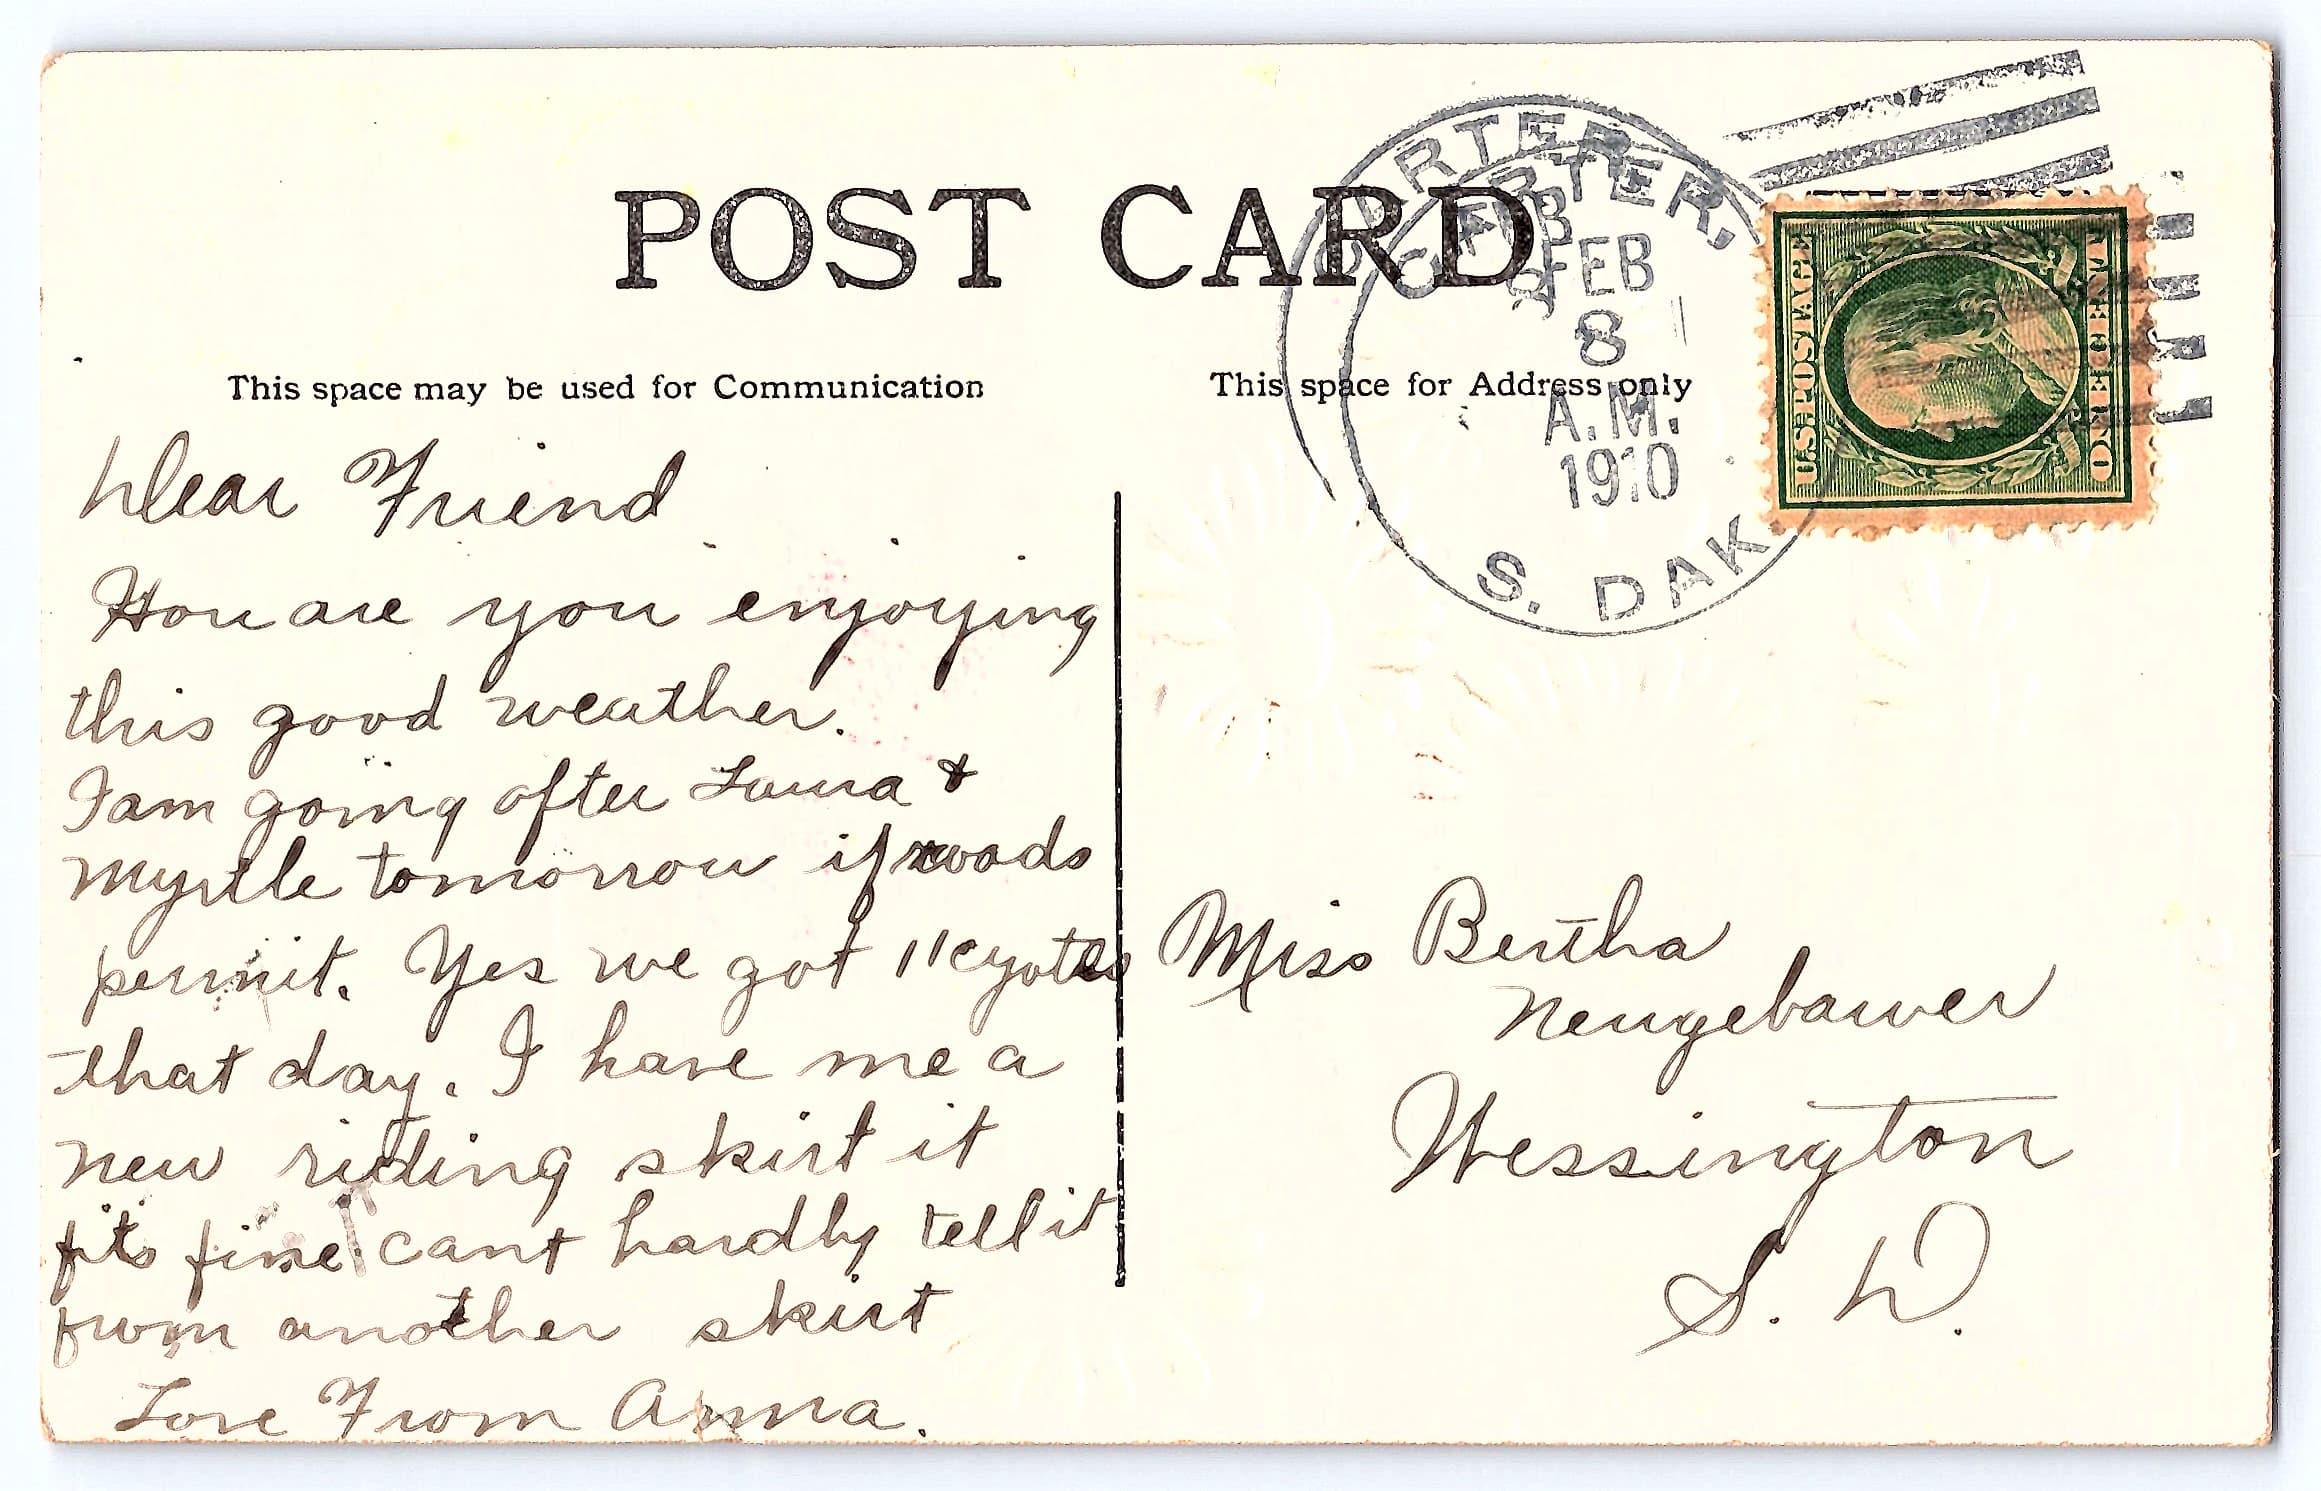 POST CARD
CARTER,
CARTER,
FEB
8
A.M.
1910
S. DAK
U.S. POSTAGE
ONE CENT
This space may be used for Communication
This space for Address only
Dear Friend
How are you enjoying
this good weather.
I am going after Laura &
Myrtle tomorrow if roads
permit. Yes we got 11 cyotes
that day. I have me a
new riding skirt it
fits fine cant hardly tell it
from another skirt
Love From Anna.
Miss Bertha
Neugebauer
Wessington
S. D.